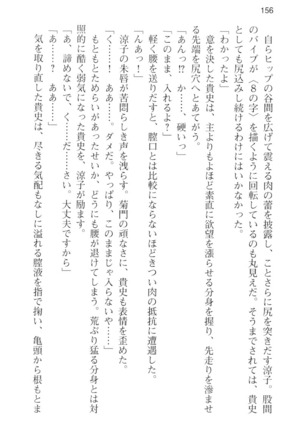 156
自らヒップの谷間を広げて震える肉の蕾を披露し、ことさらに尻を突きだす涼子。股間
のバイブが〈８の字〉を描くように回転しているのも丸見えだ。そうまでされては、貴史
としても尻込みし続けるわけにはいかなかった。
「わかったよ」
意を決した貴史は、主よりもよほど素直に欲望を漲らせる分身を握り、先走りを滲ませ
る先端を尻穴へとあてがう。
「あんっ!?　か……、硬いっ」
「このまま、入れるよ？」
「あ……、はい」
軽く腰を送りだすと、膣口とは比較にならないほどきつい肉の抵抗に遭遇した。
「く……！　ああ……、ダメだ。やっぱり、このままじゃ入らないや……」
涼子の朱唇が苦悶らしき声を洩らす。菊門の頑なさに、貴史も表情を歪めた。
もともとためらいがあったせいか、どうにも腰が退けてしまう。荒ぶり猛る分身とは対
的に酷く弱気になった貴史を、涼子が励ます。
「あ、諦めないで、く……だ……さい。大丈夫ですから」
「あ……、ああ……」
気を取り直した貴史は、尽きる気配もなしに溢れる膣液を指で掬い、亀頭から根もとま